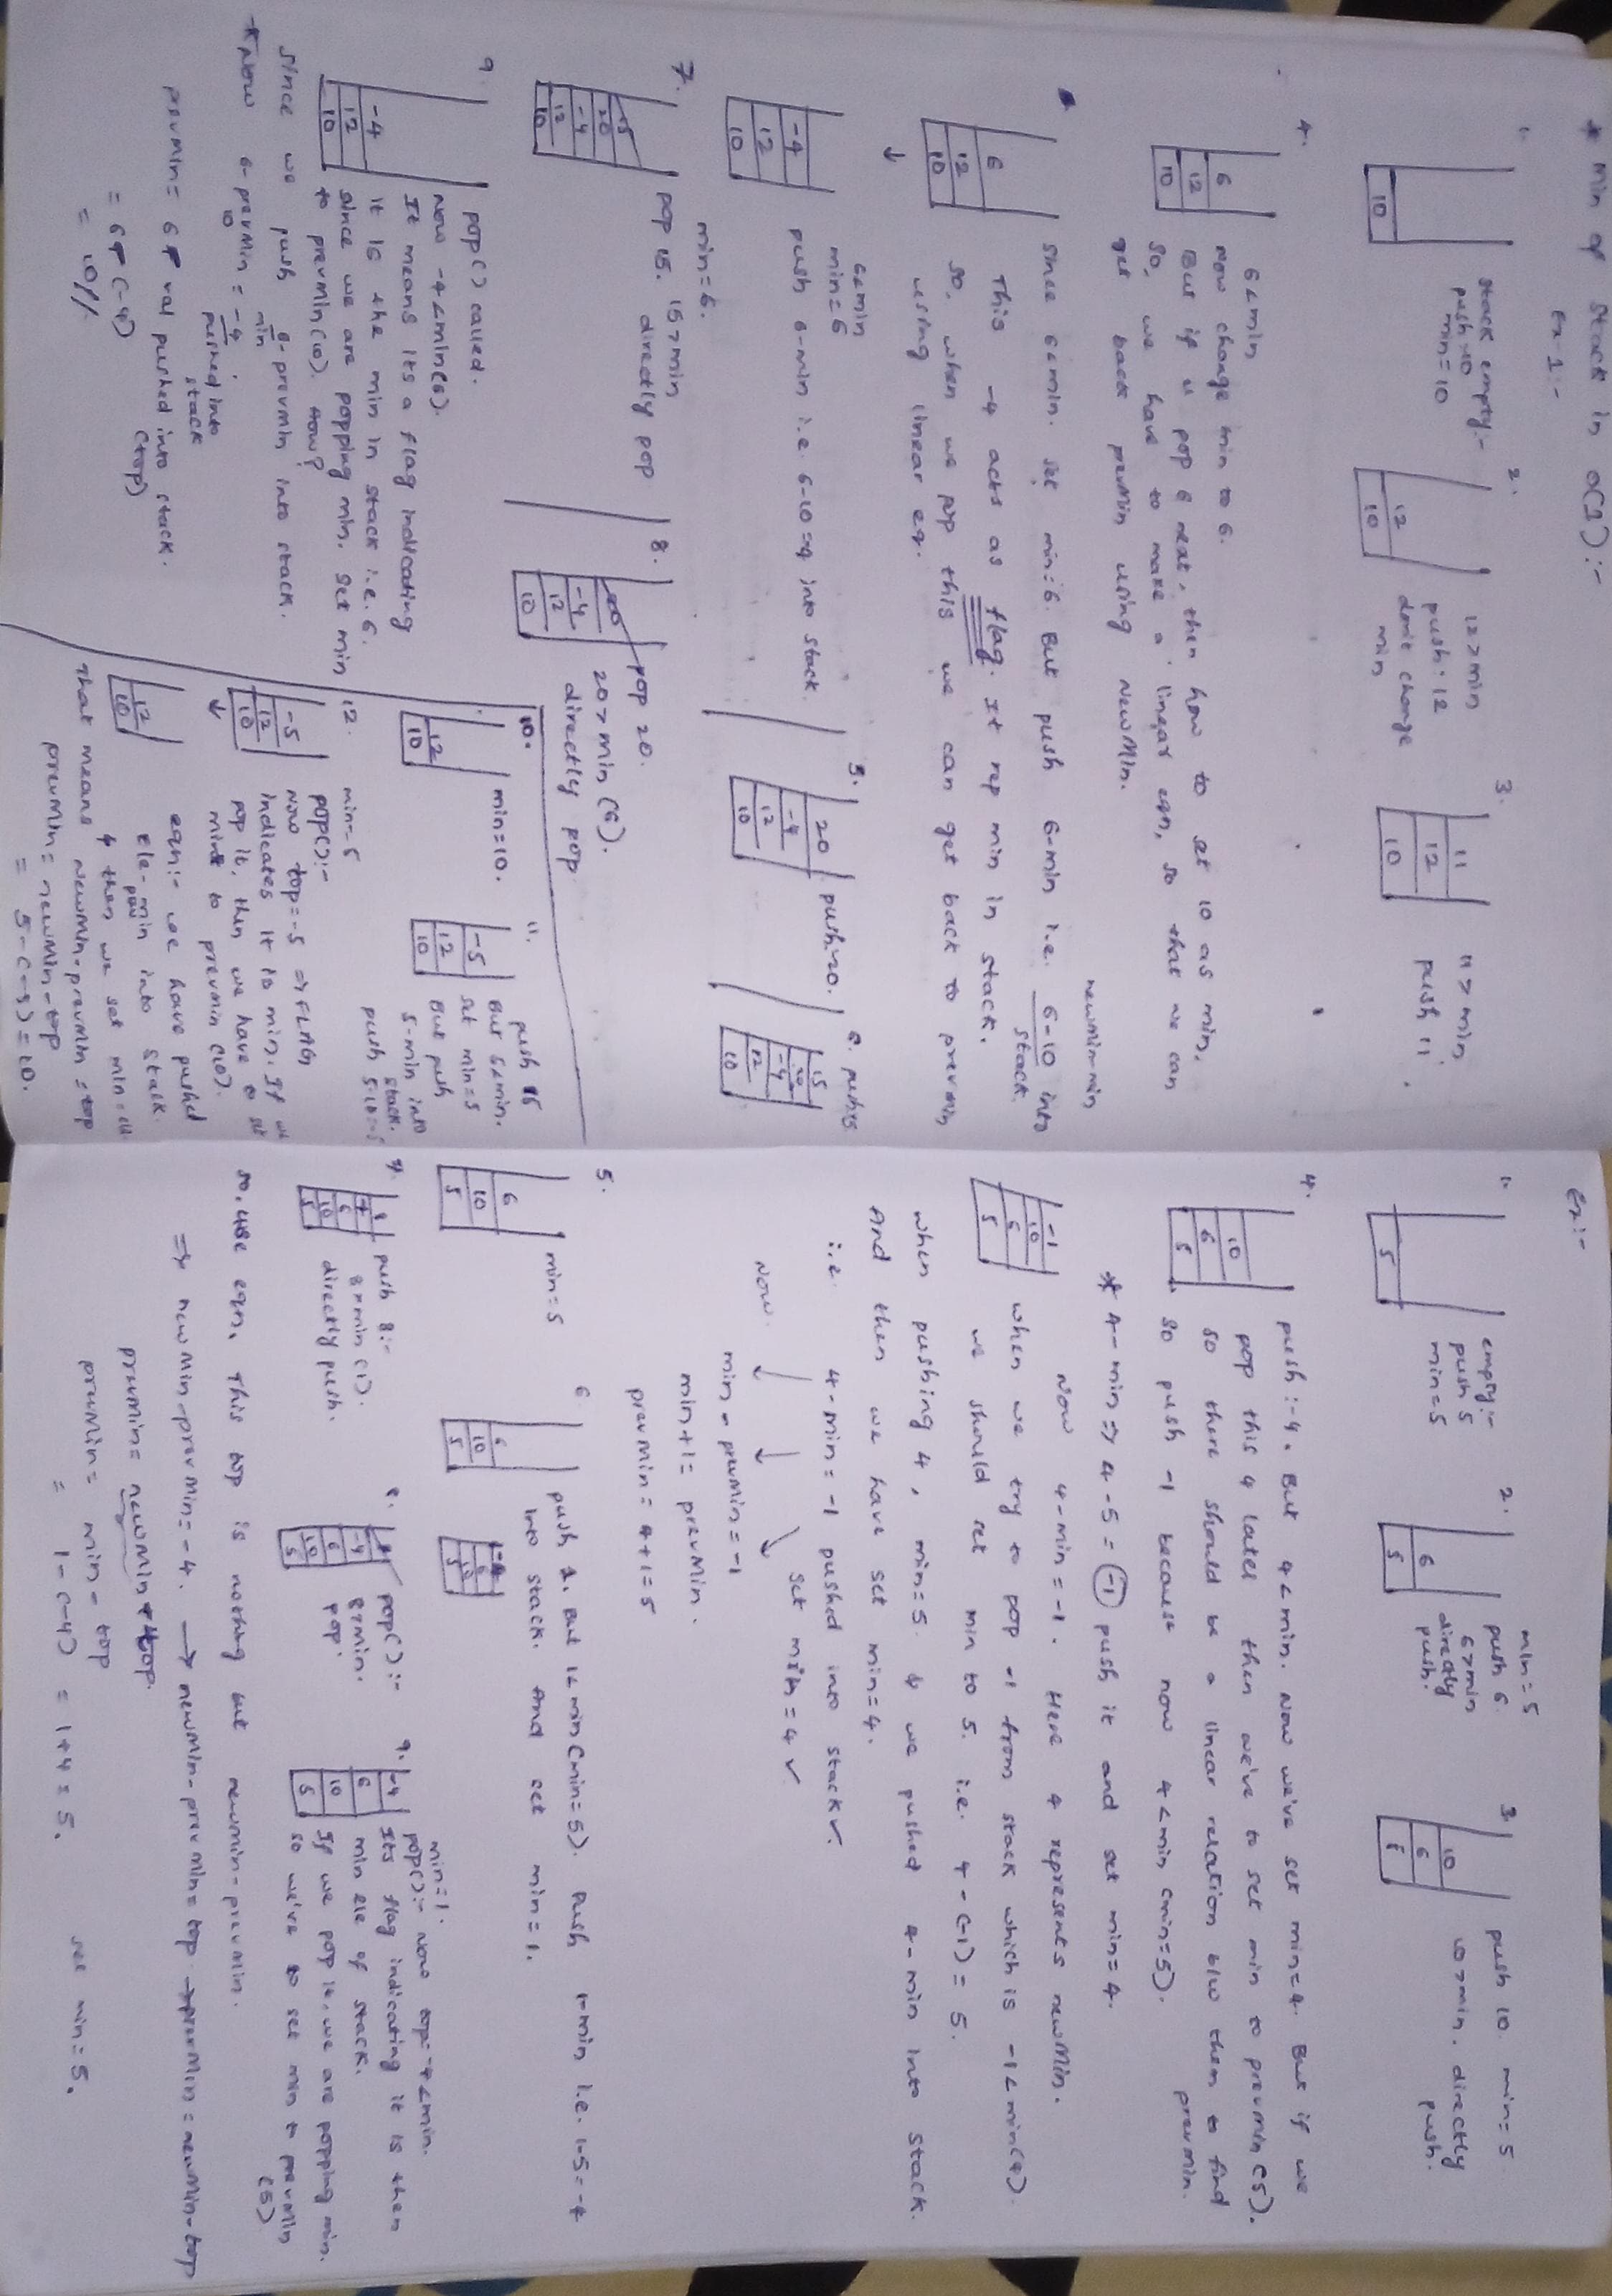 * Min of stack in O(1):-
Ex-1:-
1.
10
stack empty:-
push 10
min=10
2.
12
10
12>min
push 12
don't change
min
3.
11
12
10
11>min
push 11
4.
6
12
10
6<min
Now change min to 6.
But if u pop 6 next, then how to set 10 as min,
so, we have to make a linear eqn, so that we can
get back prevMin using newMin.
newmin-min
6
12
10
since 6<min. set min=6. But push 6-min i.e. 6-10 into
stack.
This -4 acts as flag. It rep min in stack.
so, when we pop this we can get back to prevmin
using linear eq.
↓
-4
12
10
6<min
min=6
push 6-min i.e. 6-10=-4 into stack.
5.
20
-4
12
10
push 20.
6. push 15
15
20
-4
12
10
min=6.
7.
15
20
-4
12
10
pop 15. 15>min
directly pop
8.
20
-4
12
10
pop 20.
20>min(6).
directly pop
9.
-4
12
10
pop() called.
Now -4<min(6).
It means its a flag indicating
it is the min in stack i.e. 6.
since we are popping min, set min
to prevmin(10). How?
since we push 6-prevmin into stack.
min
*Now 6-prevmin = -4
10
pushed into
stack
(top)
prevmin = 6 - val pushed into stack.
= 6-(-4)
= 10//
10.
12
10
min=10.
11.
-5
12
10
push 5
But 5<min.
set min=5
But push
5-min into
stack.
push 5-10=-5
12.
min=5
-5
12
10
↓
12
10
pop():-
Now top=-5 => FLAG
indicates it is min. If we
pop it, then we have to set
min to prevmin (10).
eqn:- we have pushed
ele-min into stack.
& then we set min=ele
That means newMin-prevMin = top
prevMin = newMin-top
= 5-(-5)=10.
Ex:-
1.
5
empty:-
push 5
min=5
2.
6
5
min=5
push 6
6>min
directly
push.
3.
10
6
5
push 10. min=5
10>min. directly
push.
4.
10
6
5
push:-4. But 4<min. Now we've set min=4. But if we
pop this 4 later then we've to set min to prevmin(5).
so there should be a linear relation b/w them to find
prevmin.
so push -1 because now 4<min (min=5).
* 4-min => 4-5 = -1 push it and set min=4.
-1
10
6
5
Now 4-min=-1. Here 4 represents newMin.
when we try to pop -1 from stack which is -1<min(4).
we should set min to 5. i.e. 4-(-1)=5.
when pushing 4, min=5. & we pushed 4-min into stack.
And then we have set min=4.
i.e. 4-min=-1 pushed into stack✓.
Now. ↓ ↓ ↘ set min=4✓
min-prevmin=-1
min+1=prevmin.
prevmin=4+1=5
5.
6
10
5
min=5
6
6
10
5
push 1. But 1<min(min=5). push 1-min i.e. 1-5=-4
into stack. And set min=1.
-4
6
10
5
7.
8
-4
6
10
5
push 8:-
8>min(1).
directly push.
8.
8
-4
6
10
5
pop():-
8>min.
pop.
9.
-4
6
10
5
min=1.
pop():- Now top=-4<min.
Its flag indicating it is then
min ele of stack.
If we pop it, we are popping min.
so we've to set min to prevmin
(5)
so. use eqn. This top is nothing but newmin-prevmin.
=> newMin-prevMin=-4. → newMin-prevMin=top → prevMin=newMin-top
prevMin = newMin-top.
prevMin = min-top
= 1-(-4) = 1+4=5. set min=5.